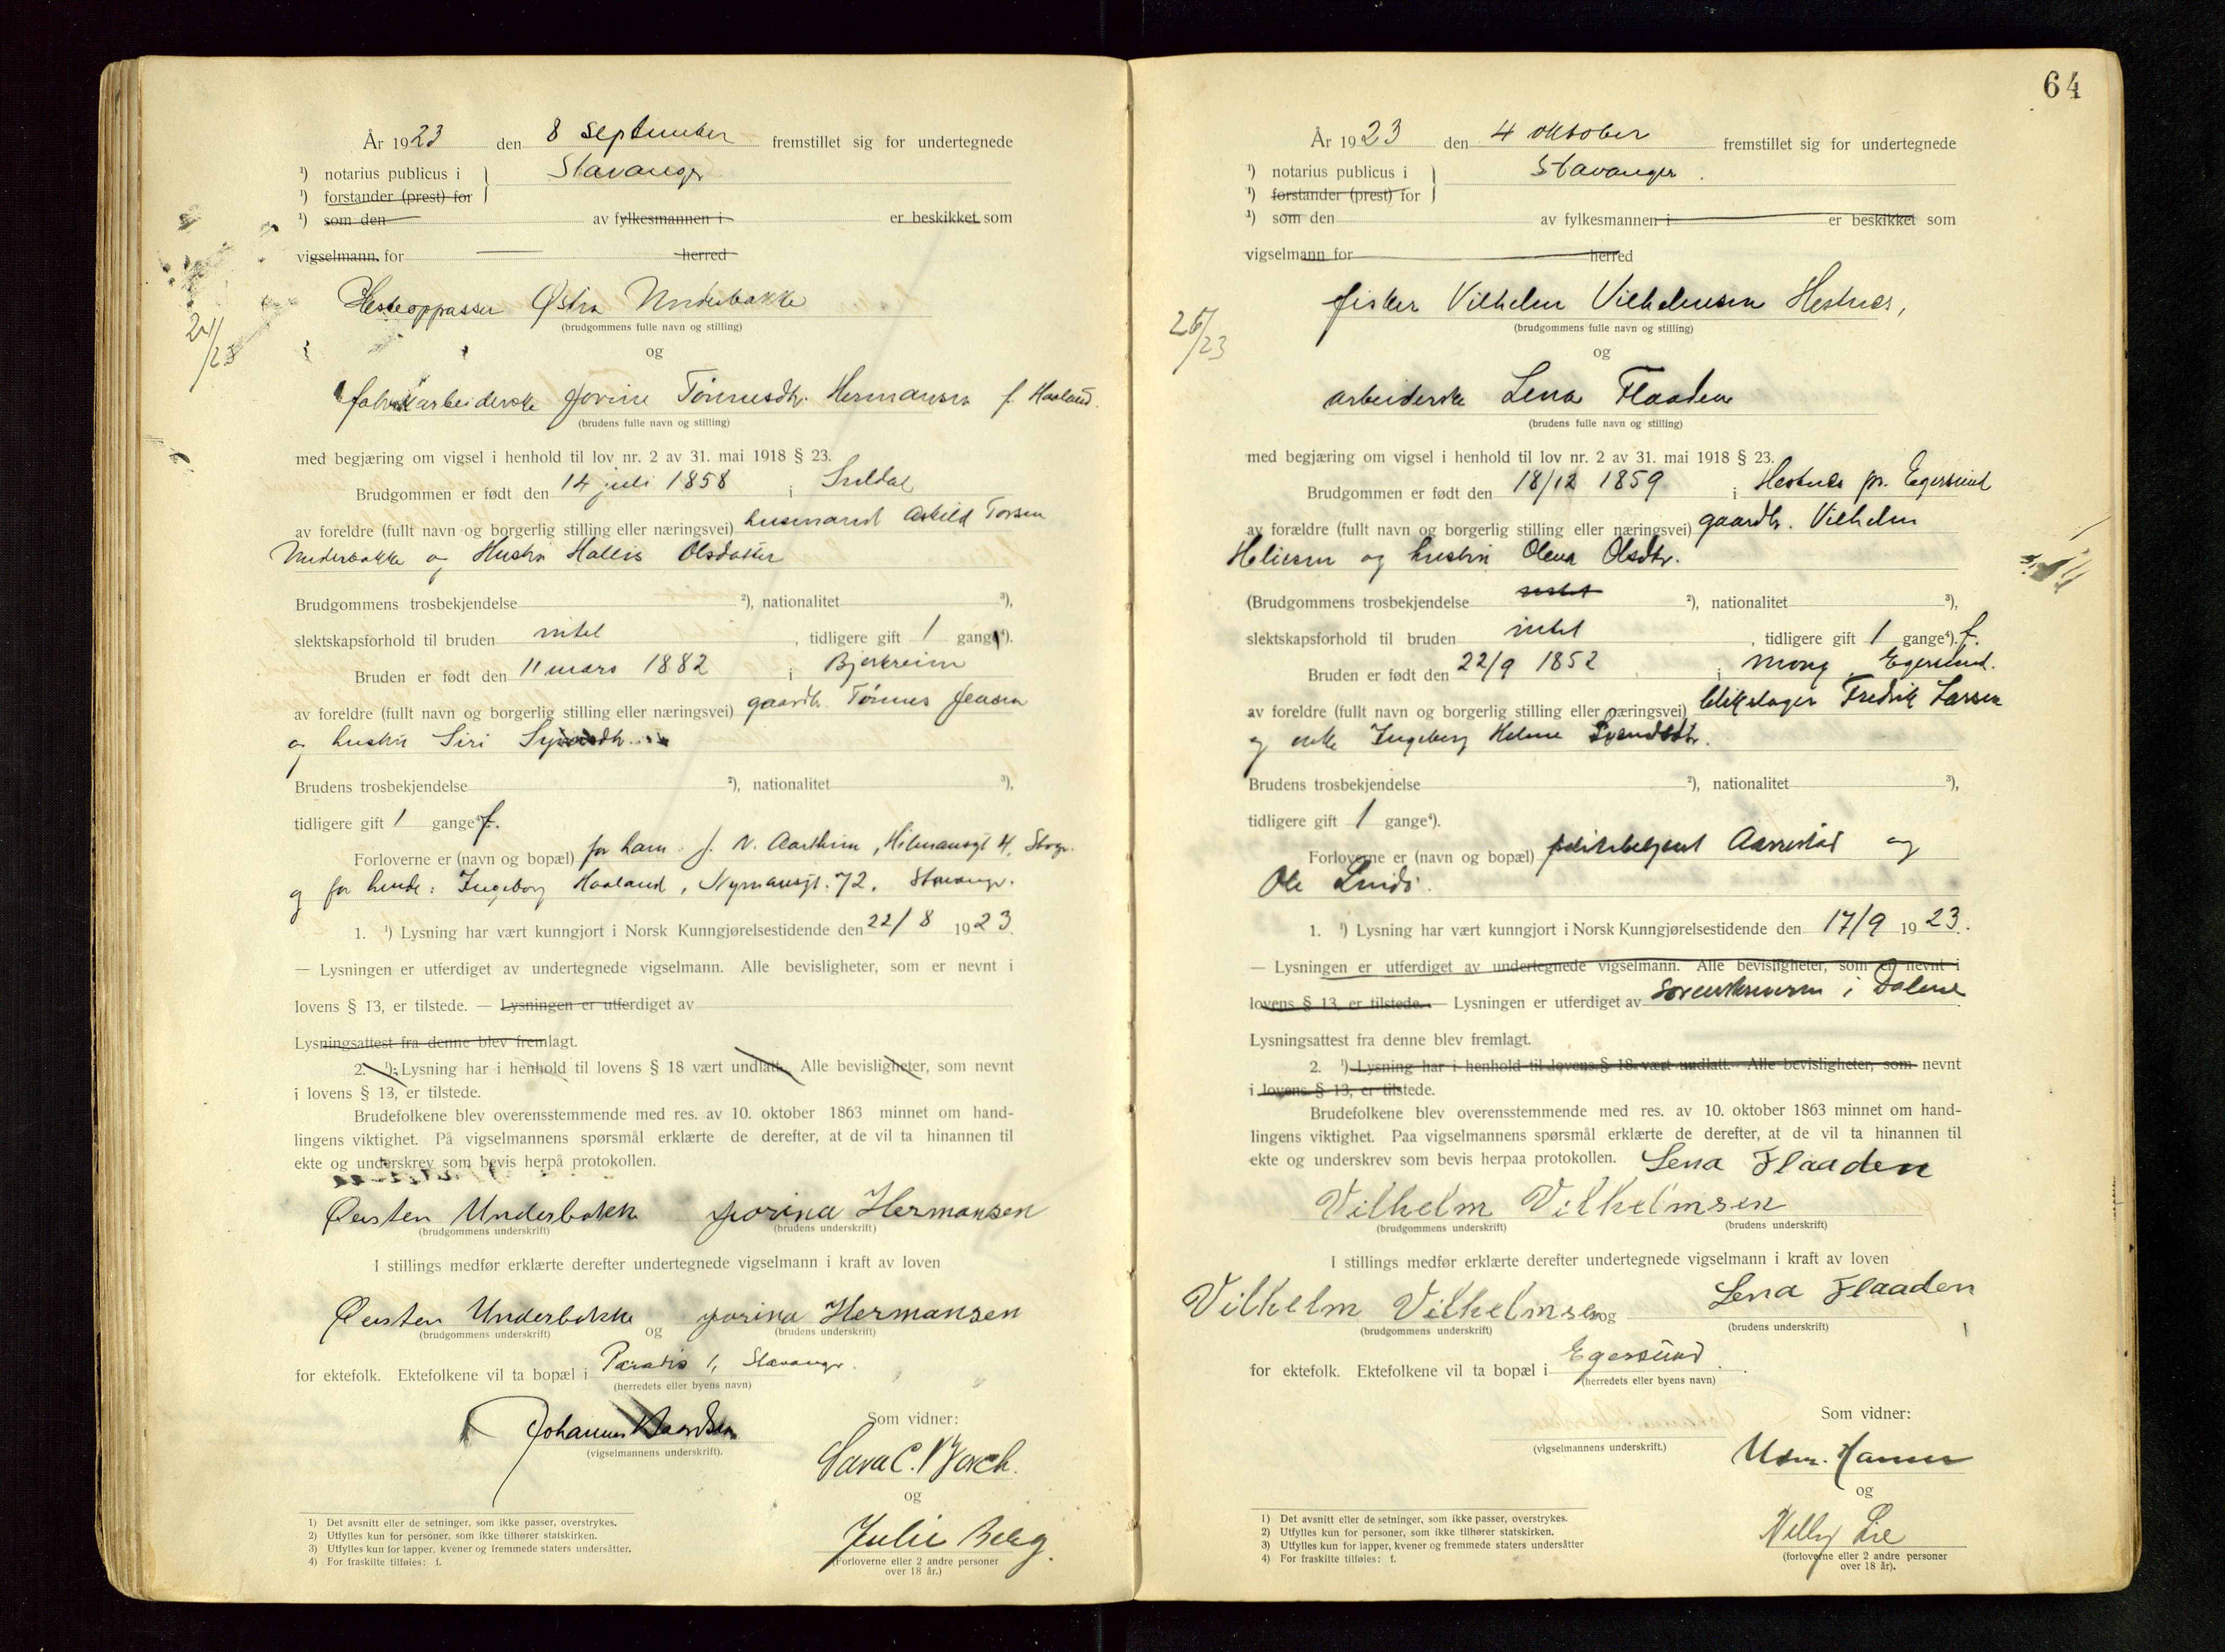 År 1923 den 8 September fremstillet sig for undertegnede
¹) notarius publicus i Stavanger
¹) forstander (prest) for
¹) som den av fylkesmannen i er beskikket som
vigselmann for herred
24/23
Hesteoppasser Østen Underbakke
(brudgommens fulle navn og stilling)
og
fabrikarbeiderske Jorine Tønnesdtr. Hermansen f. Haaland.
(brudens fulle navn og stilling)
med begjæring om vigsel i henhold til lov nr. 2 av 31. mai 1918 § 23.
Brudgommen er født den 14 juli 1858 i Suldal
av foreldre (fullt navn og borgerlig stilling eller næringsvei) husmand Askild Torsen
Underbakke og Hustru Hallis Olsdatter
Brudgommens trosbekjendelse ²), nationalitet ³),
slektskapsforhold til bruden intet, tidligere gift 1 gang ⁴).
Bruden er født den 11 mars 1882 i Bjerkreim
av foreldre (fullt navn og borgerlig stilling eller næringsvei) gaardbr. Tønnes Jensen
og hustru Siri
Brudens trosbekjendelse ²), nationalitet ³),
tidligere gift 1 gange⁴) f.
Forloverne er (navn og bopæl) for ham: J. N. Aartheim, Hilmansgt 4, Stvgr.
og for hende: Ingeborg Haaland, Nymansgt. 72, Stavanger.
1. ¹) Lysning har vært kunngjort i Norsk Kunngjørelsestidende den 22/8 1923.
— Lysningen er utferdiget av undertegnede vigselmann. Alle bevisligheter, som er nevnt i
lovens § 13, er tilstede. — Lysningen er utferdiget av
Lysningsattest fra denne blev fremlagt.
2. ¹) Lysning har i henhold til lovens § 18 vært undlatt. Alle bevisligheter, som nevnt
i lovens § 13, er tilstede.
Brudefolkene blev overensstemmende med res. av 10. oktober 1863 minnet om hand-
lingens viktighet. På vigselmannens spørsmål erklærte de derefter, at de vil ta hinannen til
ekte og underskrev som bevis herpå protokollen.
Øusten Underbakke Jorina Hermansen
(brudgommens underskrift) (brudens underskrift)
I stillings medfør erklærte derefter undertegnede vigselmann i kraft av loven
Øusten Underbakke og Jorina Hermansen
(brudgommens underskrift) (brudens underskrift)
for ektefolk. Ektefolkene vil ta bopæl i Paradis 1, Stavanger.
(herredets eller byens navn)
Johannes
(vigselmannens underskrift).
Som vidner:
Sara C.
og
Julie Berg.
(Forloverne eller 2 andre personer
over 18 år.)
1) Det avsnitt eller de setninger, som ikke passer, overstrykes.
2) Utfylles kun for personer, som ikke tilhører statskirken.
3) Utfylles kun for lapper, kvener og fremmede staters undersåtter.
4) For fraskilte tilføies: f.
64
År 1923 den 4 oktober fremstillet sig for undertegnede
¹) notarius publicus i Stavanger.
¹) forstander (prest) for
¹) som den av fylkesmannen i er beskikket som
vigselmann for herred
26/23
fisker Vilhelm Vilhelmsen Hestnes,
(brudgommens fulle navn og stilling)
og
arbeiderske Lena Flaaden
(brudens fulle navn og stilling)
med begjæring om vigsel i henhold til lov nr. 2 av 31. mai 1918 § 23.
Brudgommen er født den 18/12 1859 i Hestnes pr. Egersund
av forældre (fullt navn og borgerlig stilling eller næringsvei) gaardbr. Vilhelm
Heliesen og hustru Olena Olsdtr.
(Brudgommens trosbekjendelse intet ²), nationalitet ³),
slektskapsforhold til bruden intet, tidligere gift 1 gange⁴). f.
Bruden er født den 22/9 1852 i Mong Egersund.
av foreldre (fullt navn og borgerlig stilling eller næringsvei) blikslager Fredrik Larsen
og enke Ingeborg Helene Svendsdtr.
Brudens trosbekjendelse ²), nationalitet ³),
tidligere gift 1 gange⁴).
Forloverne er (navn og bopæl) politibetjent Aarrestad og
Ole
1. ¹) Lysning har vært kunngjort i Norsk Kunngjørelsestidende den 17/9 1923.
— Lysningen er utferdiget av undertegnede vigselmann. Alle bevisligheter, som er nevnt i
lovens § 13, er tilstede. — Lysningen er utferdiget av Sorenskriveren i Dalene
Lysningsattest fra denne blev fremlagt.
2. ¹) Lysning har i henhold til lovens § 18 vært undlatt. Alle bevisligheter, som nevnt
i lovens § 13, er tilstede.
Brudefolkene blev overensstemmende med res. av 10. oktober 1863 minnet om hand-
lingens viktighet. Paa vigselmannens spørsmål erklærte de derefter, at de vil ta hinannen til
ekte og underskrev som bevis herpaa protokollen. Lena Flaaden
Vilhelm Vilhelmsen
(brudgommens underskrift) (brudens underskrift)
I stillings medfør erklærte derefter undertegnede vigselmann i kraft av loven
Vilhelm Vilhelmsen og Lena Flaaden
(brudgommens underskrift) (brudens underskrift)
for ektefolk. Ektefolkene vil ta bopæl i Egersund.
(herredets eller byens navn)
(vigselmannens underskrift.)
Som vidner:
Hanner
og
Nelly Lie
(forloverne eller 2 andre personer
over 18 år).
1) Det avsnitt eller de setninger, som ikke passer, overstrykes.
2) Utfylles kun for personer, som ikke tilhører statskirken.
3) Utfylles kun for lapper, kvener og fremmede staters undersåtter
4) For fraskilte tilføies: f.